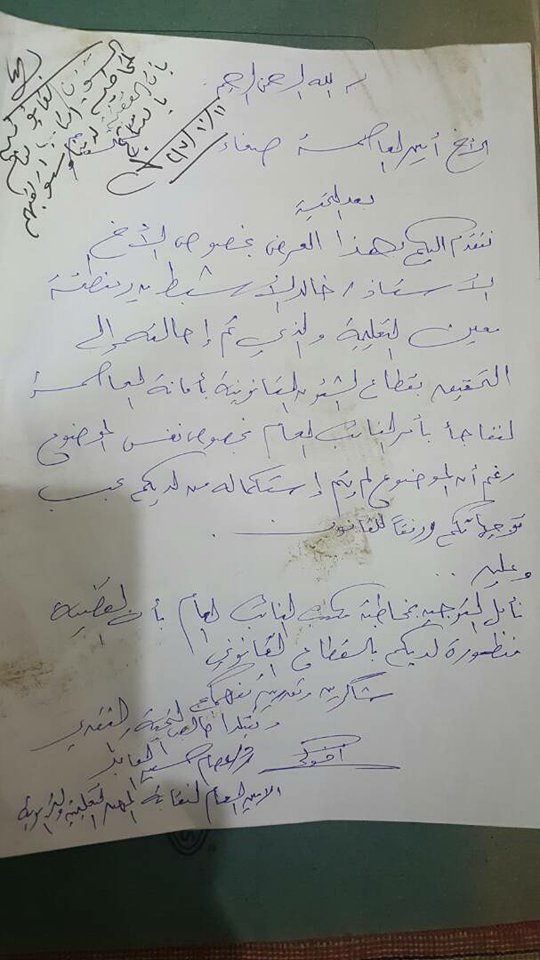 بسم الله الرحمن الرحيم
الأخ أمين العاصمة صنعاء
بعد التحية
نتقدم اليكم بهذا العرض بخصوص الأخ
الأستاذ / خالد الأشبط مدير منطقة
معين التعليمية والذي تم إحالته إلى
التحقيق بقطاع الشئون القانونية بأمانة العاصمة
لنفاجأ بأمر النائب العام بخصوص نفس الموضوع
رغم أن الموضوع لم يتم إستكماله من لديكم حسب
توجيهاتكم ووفقاً للقانون .
وعليه ..
نأمل التوجيه بمخاطبة مكتب النائب العام بأن القضية
منظورة لديكم بالقطاع القانوني
شاكرين ومقدرين تفهمكم
وتقبلوا خالص التحية والتقدير
أخوكم / عصام حسين العابد
الامين العام لنقابة المهن التعليمية والتربوية
بأن القضية
٢٠١٧/١٠/١١